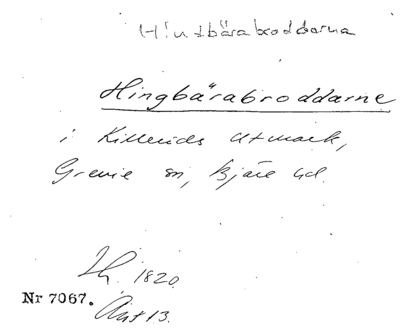 Hintbärabroddarna
Hingbärabroddarne
i Killeröds Utmark,
Grevie sn, Bjäre hd.
1820.
Nr 7067.
Akt 13.